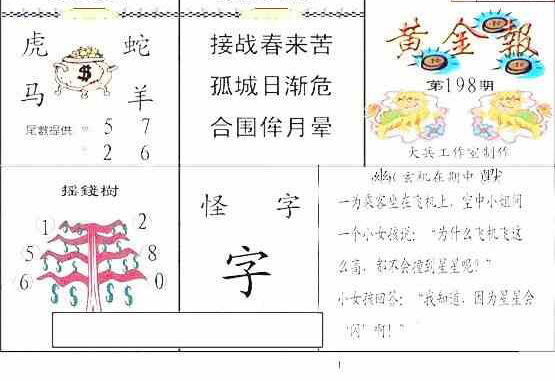 虎 蛇
$
马 羊
尾數提供 5 7
2 6
接战春来苦
孤城日渐危
合围侔月晕
黄金報
第198期
大兵工作室制作
玄机在期中
摇錢樹
1 2
5 8
6 0
$ $ $ $ $ $
怪 字
字
一为乘客坐在飞机上，空中小姐问
一个小女孩说：“为什么飞机飞这
么高，都不会撞到星星呢？”
小女孩回答：“我知道，因为星星会
“闪”啊！”